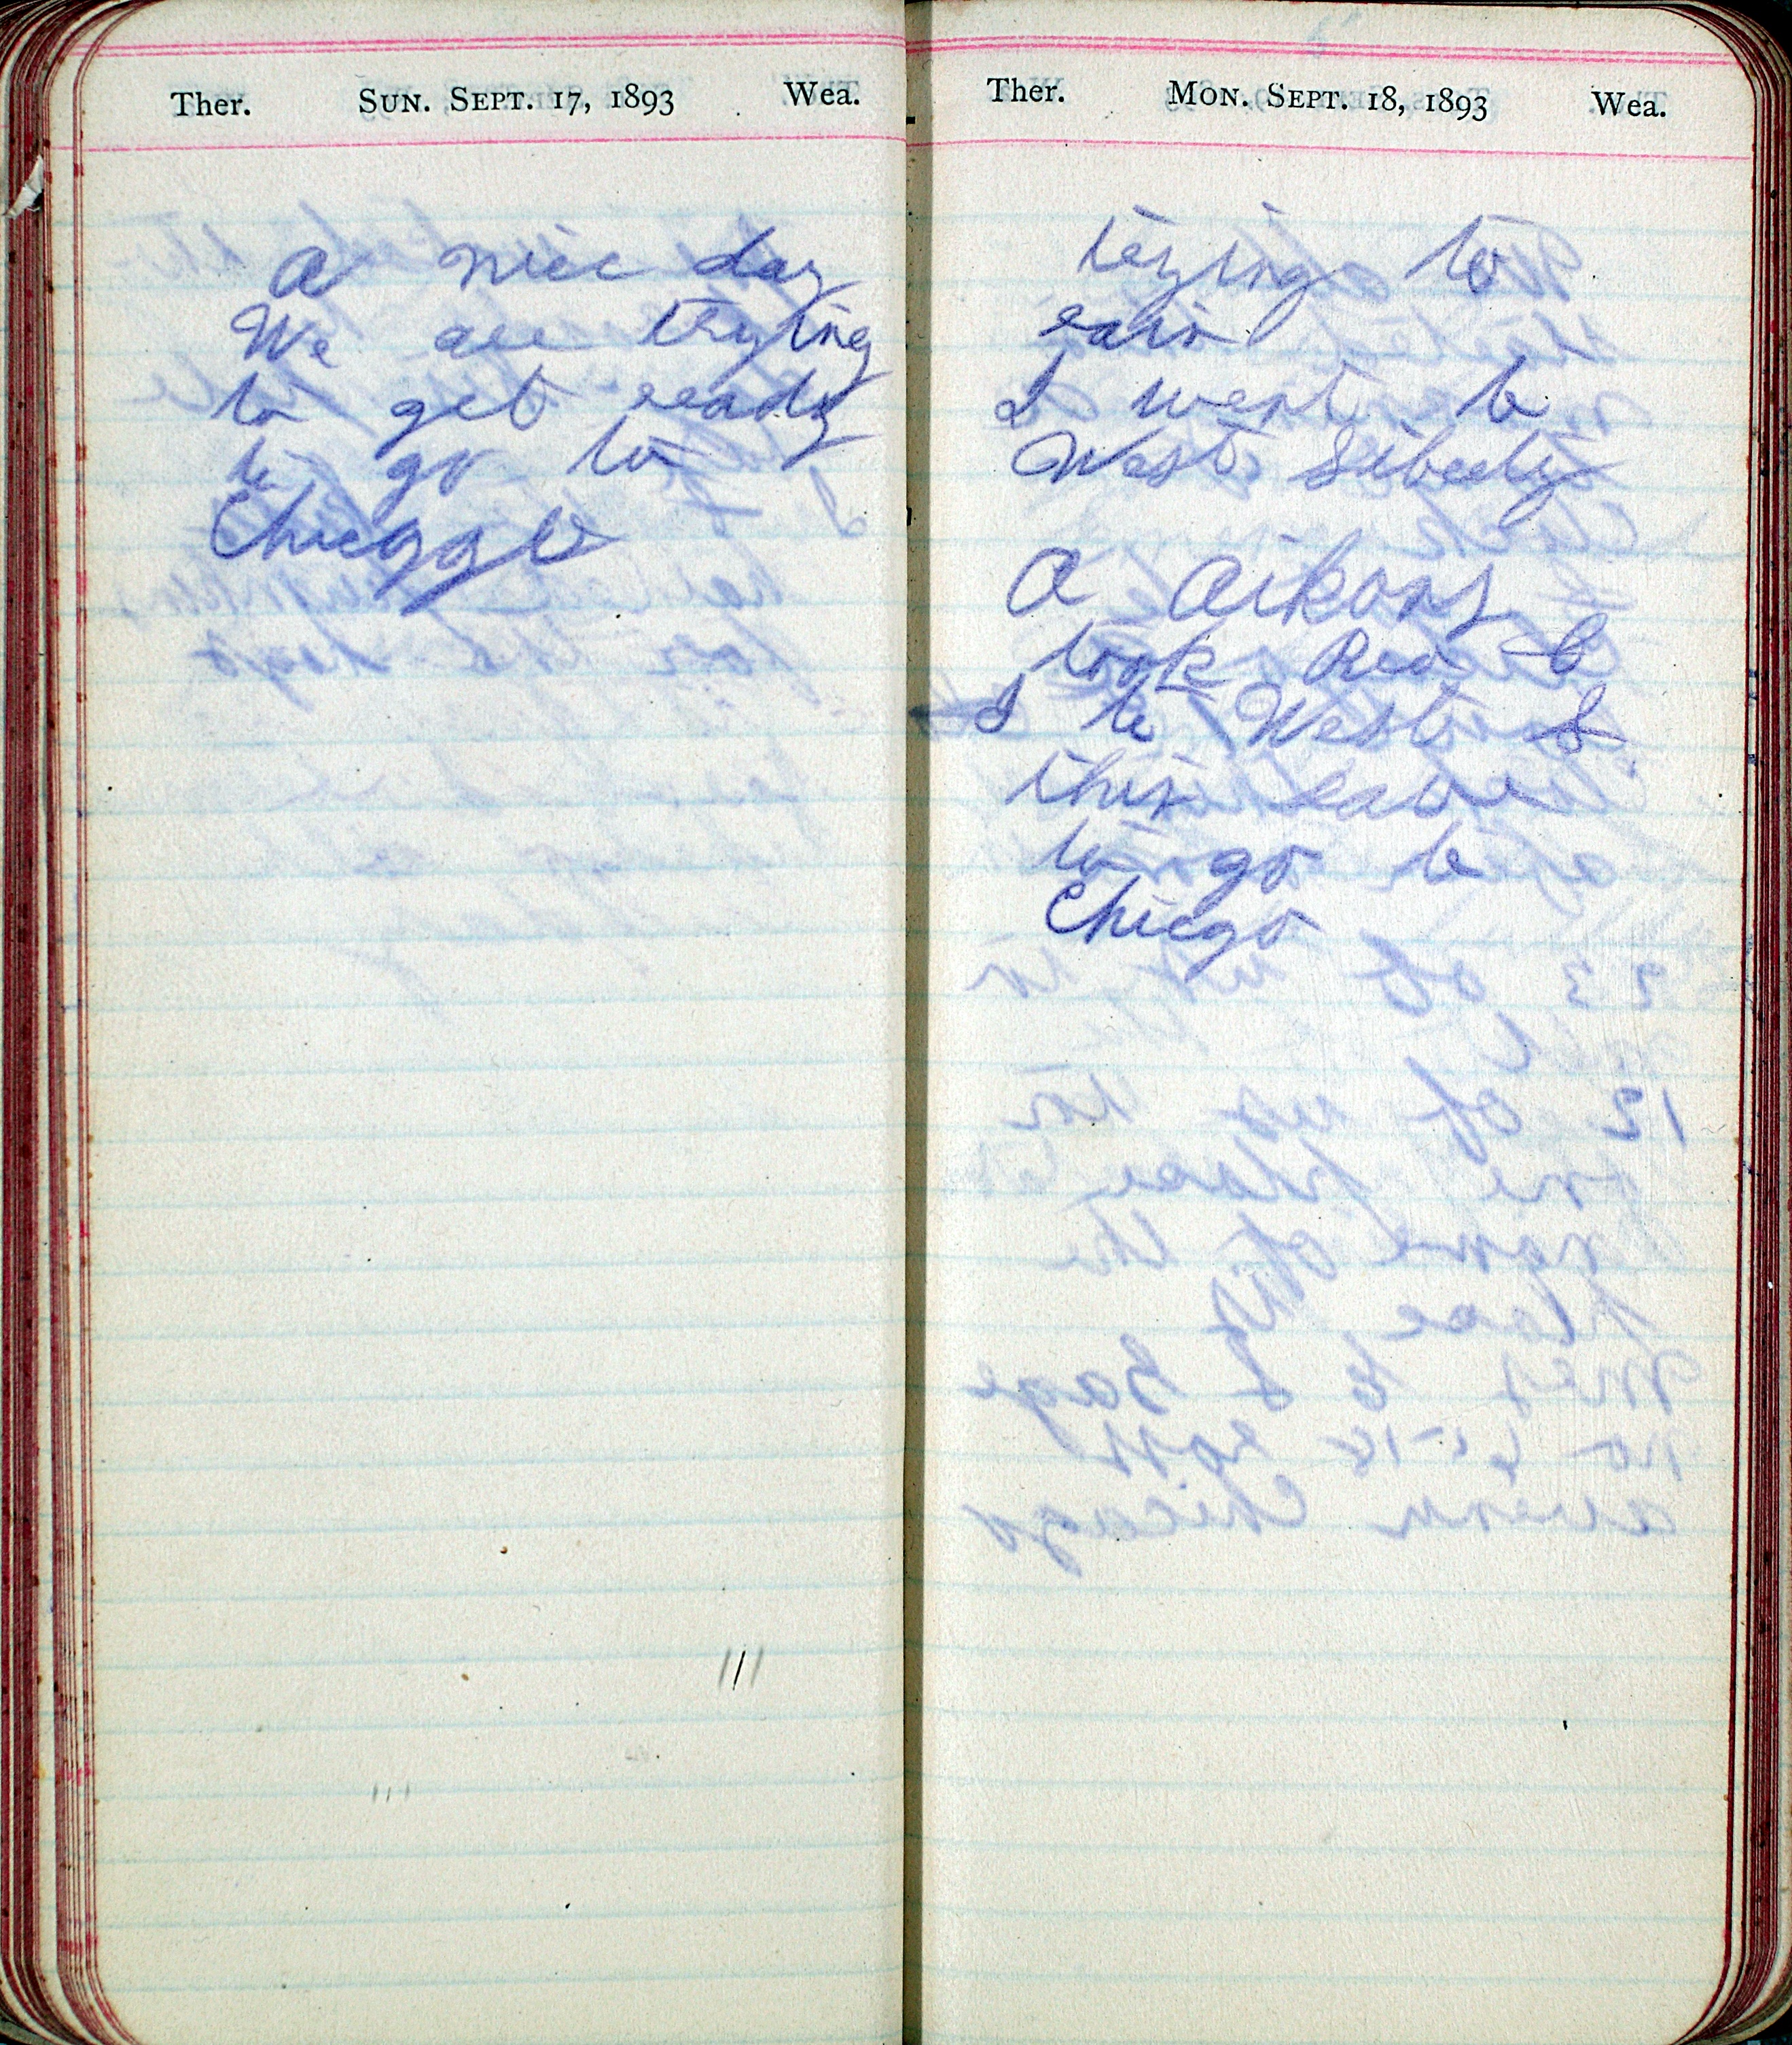 Ther. Sun. Sept. 17, 1893 Wea.
A nice day
We are trying
to get ready
to go to
Ther. Mon. Sept. 18, 1893 Wea.
trying to
rain
I went to
West Liberty
A Aikons
took Red &
I to West L
this eave
to go to
Chicgo